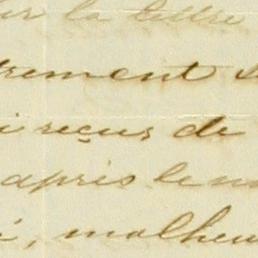 sur la lettre
trement s
i reçus de
après le
i, malheu